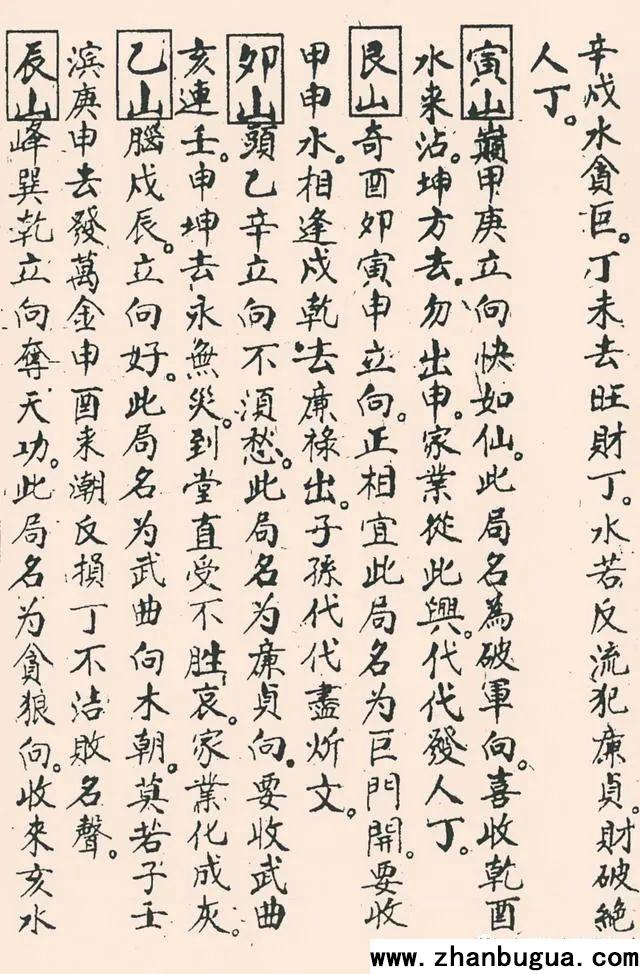 辛戌水貪巨。丁未去旺財丁。水若反流犯廉貞。財破絕
人丁。
寅山巔甲庚立向快如仙。此局名為破軍向。喜收乾酉
水来沾。坤方去勿出申。家業從此興。代代發人丁。
艮山奇酉卯寅申立向。正相宜此局名为巨門開。要收
甲申水。相逢戌乾去廉祿出。子孫代代盡炘文。
卯山頭乙辛立向不須愁。此局名为廉貞向。要收武曲
亥連壬。申坤去永無災。到堂直受不胜哀。家業化成灰。
乙山腦戌辰。立向好。此局名为武曲向木朝。莫若子壬
滨庚申去發萬金申酉来潮反損丁不沾敗名聲。
辰山峰巽乾立向奪天功。此局名为貪狼向。收来亥水
www.zhanbugua.com